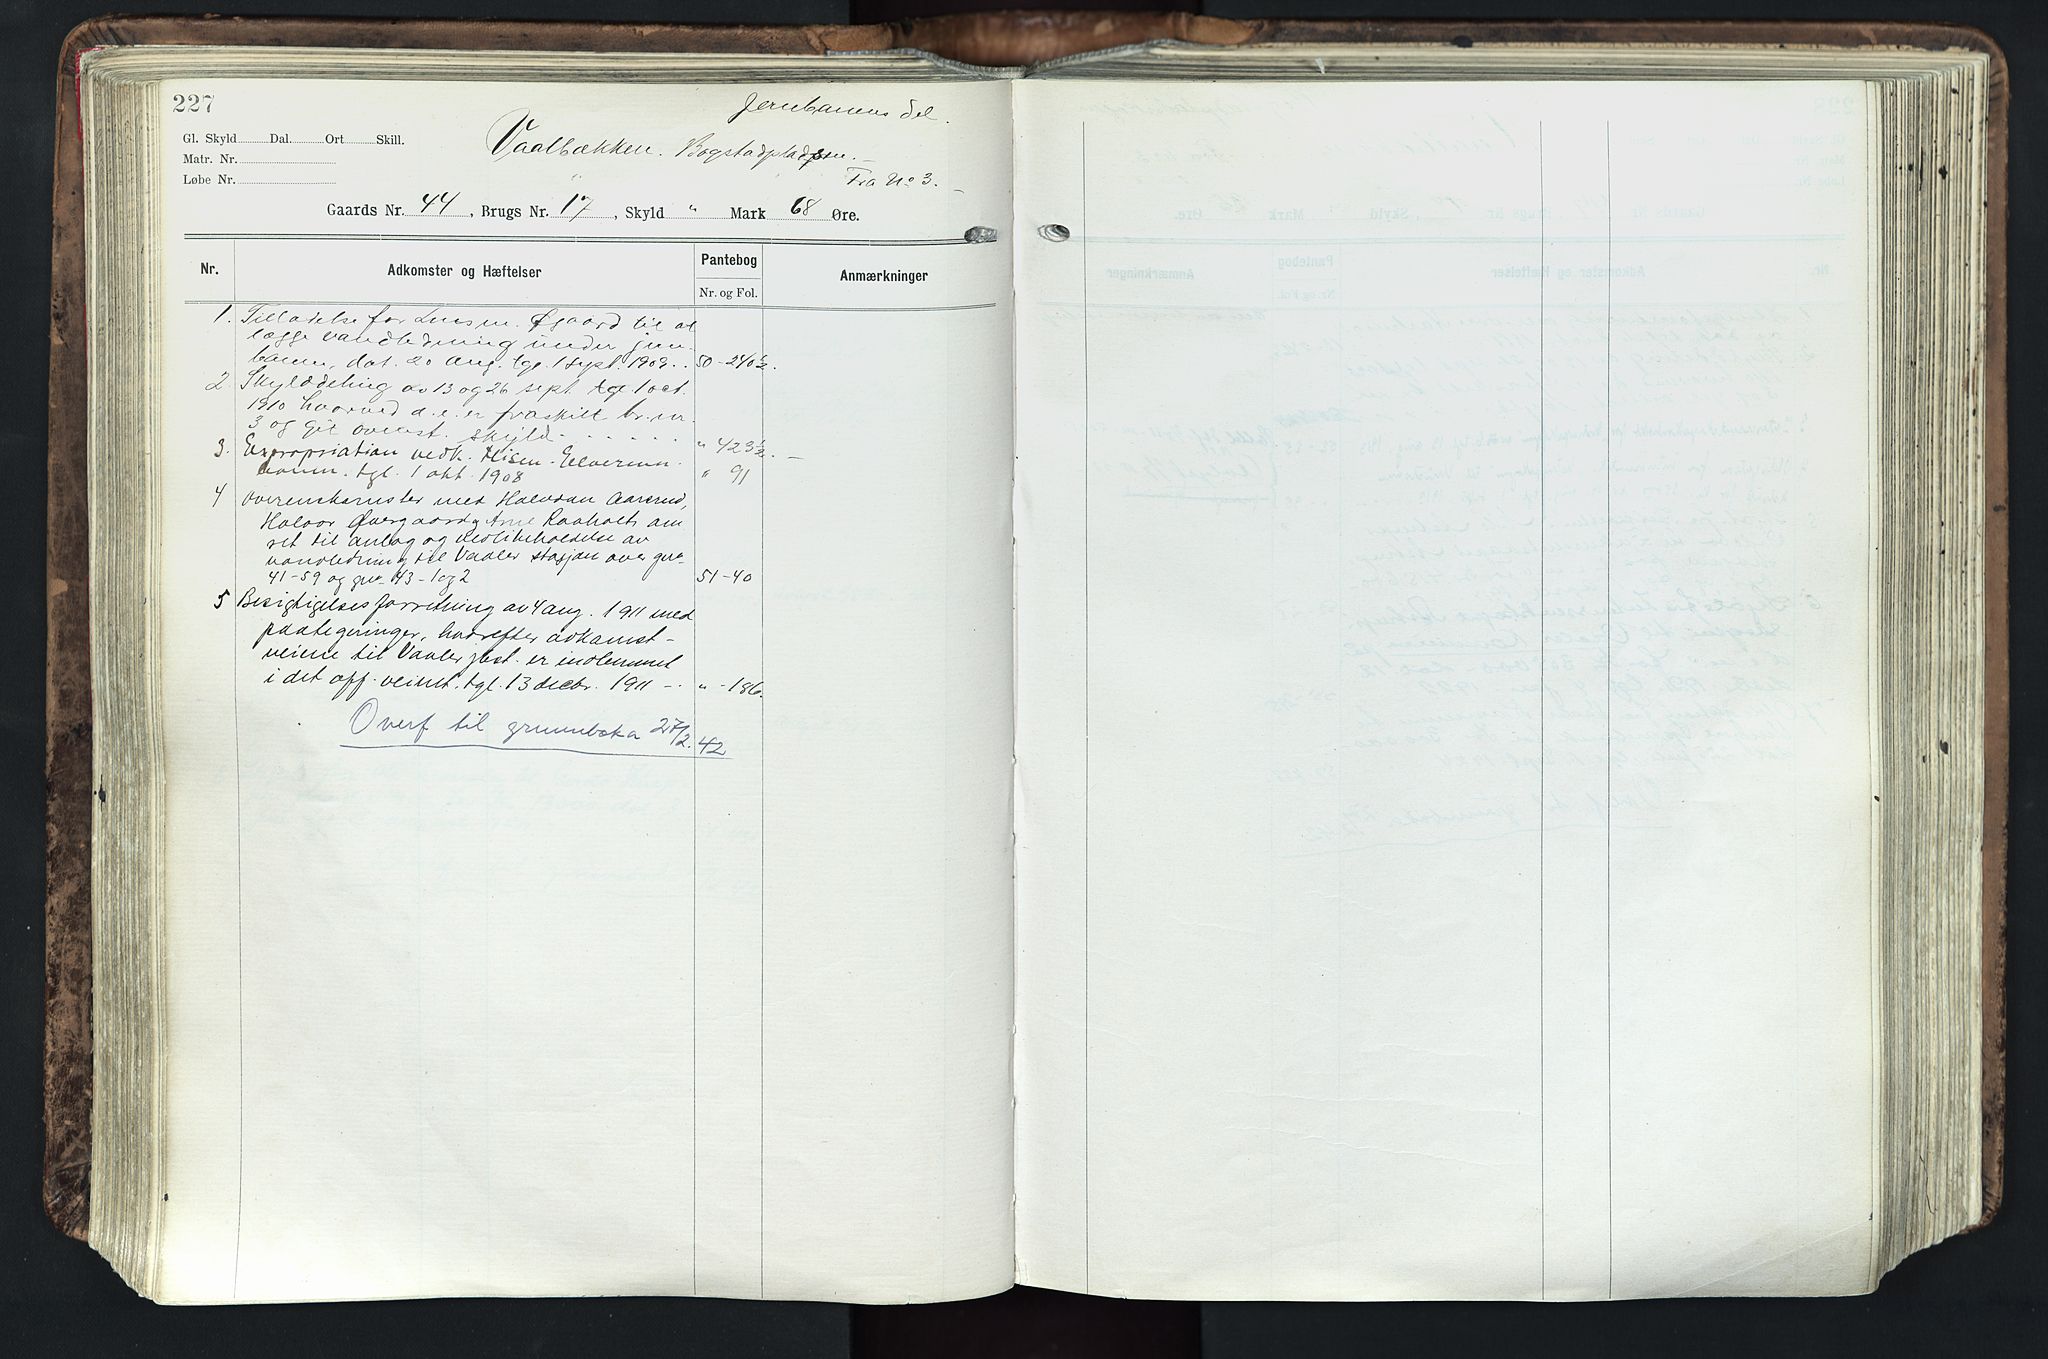 227
Jernbanens del.
Gl. Skyld Dal. Ort Skill.
Vaalbækken. Bogstadpladsen. —
Matr. Nr.
Løbe Nr.
Fra No 3. —
Gaards Nr. 44, Brugs Nr. 17, Skyld " Mark 68 Øre.
Nr. Adkomster og Hæftelser Pantebog Anmærkninger
Nr. og Fol.
1. Tilladelse for Øgaard til at
lægge vandledning under jern-
banen, dat. 20 aug. tgl. 1 sept. 1909. 50-240½.
2. Skylddeling av 13 og 26 sept. tgl. 1 oct.
1910 hvorved d. e. er fraskilt br. nr
3 og git ovenst. skyld - . . . . . " 423½. —
3. Expropriation vedk. Elverum
banen. tgl. 1 okt. 1908 " 91
4 Overenskomster med Halvdan Aaserud,
Halvor Øvergaard og Arne Raaholt om
ret til anlæg og vedlikeholdelse av
vandledning til Vaaler stasjon over gnr
41-59 og gnr 43-1 og 2 51-40
5 Besigtigelsesforretning av 4 aug. 1911 med
paategninger, hvorefter adkomst-
veiene til Vaaler jbst. er indlemmet
i det off. veinet. tgl. 13 decbr. 1911 -. " - 186.
Overf til grunnboka 27/2. 42